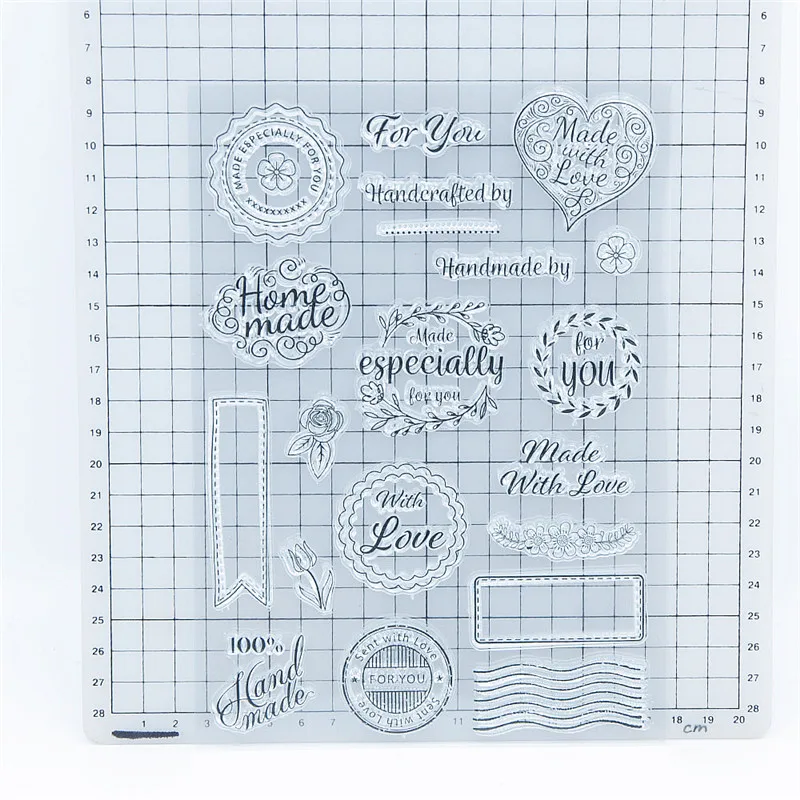 6 6
7 7
8 8
9 9
10 10
11 11
12 12
13 13
14 14
15 15
16 16
17 17
18 18
19 19
20 20
21 21
22 22
23 23
24 24
25 25
26 26
27 27
28 28
MADE ESPECIALLY FOR YOU
xxxxxxxxxx
For You
Made
with
Love
Handcrafted by
Handmade by
Home
made
Made
especially
for you
for
you
Made
With Love
With
Love
100%
Hand
made
Sent with Love
FOR YOU
Sent with Love
1 2 3 4 5 6 7 11 18 19 20
cm